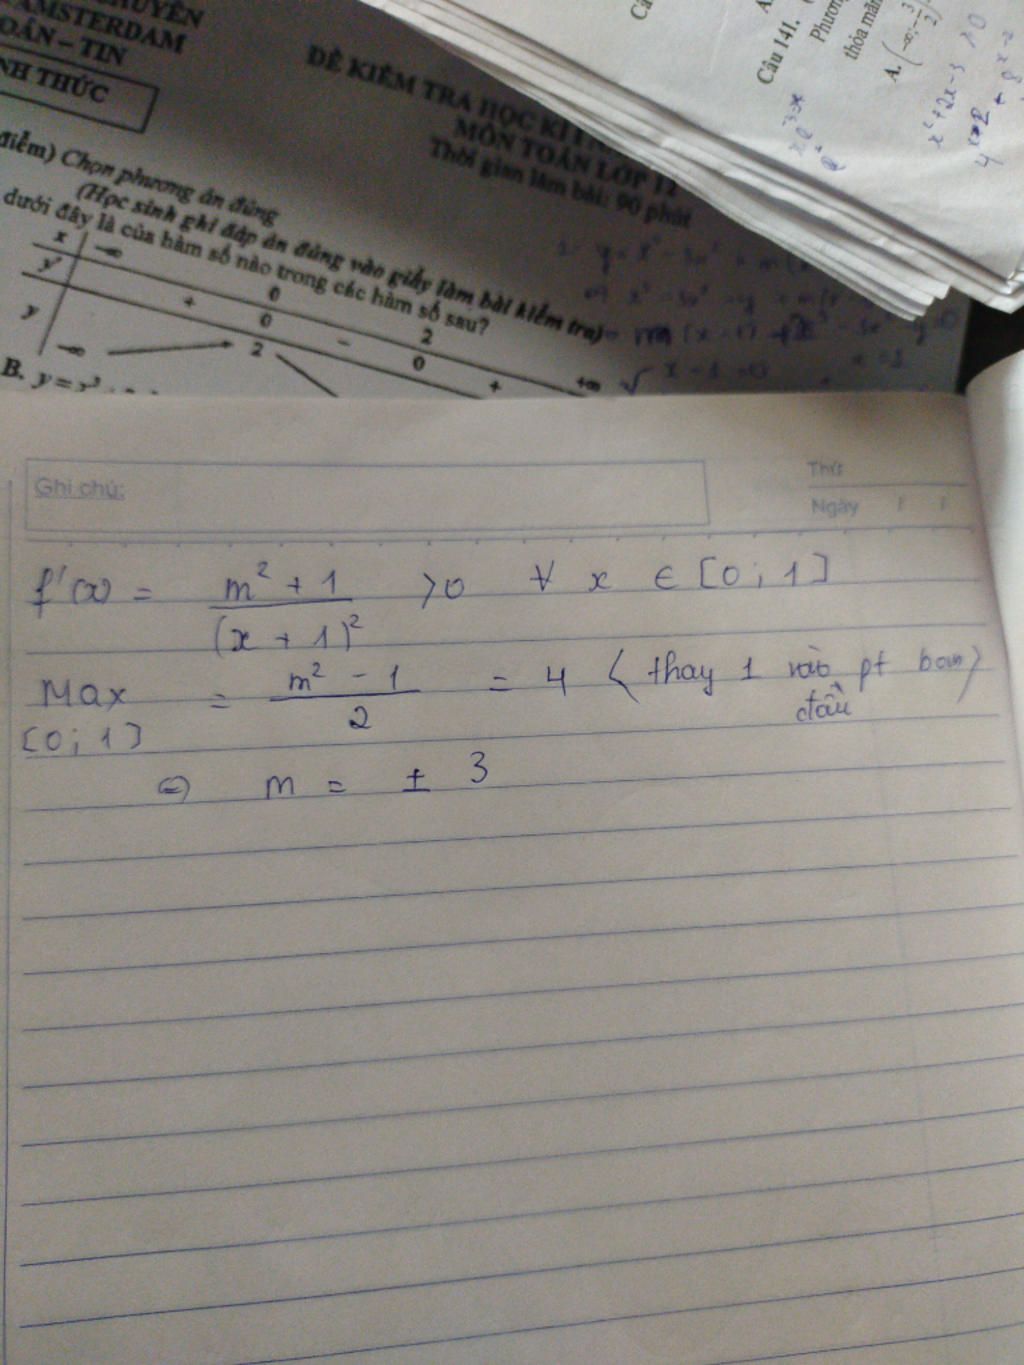 CHUYÊN
AMSTERDAM
TOÁN – TIN
ĐỀ KIỂM TRA HỌC KÌ I
MÔN TOÁN LỚP 12
Thời gian làm bài: 90 phút
điểm) Chọn phương án đúng
(Học sinh ghi đáp án đúng vào giấy làm bài kiểm tra)
dưới đây là của hàm số nào trong các hàm số sau?
x -∞ 0 2 +∞
y' + 0 - 0 +
y -∞ 2
B. y = x³
Câu 141.
Phương
thỏa mãn
A. (-∞; -3/2)
x² + 2x - 3 > 0
x - 1 = 0
x = 1
Ghi chú:
Thứ
Ngày / /
f'(x) = (m² + 1)/(x + 1)² >0 ∀ x ∈ [0 ; 1]
Max [0 ; 1] = (m² - 1)/2 = 4 ( thay 1 vào pt ban đầu )
⇔ m = ± 3